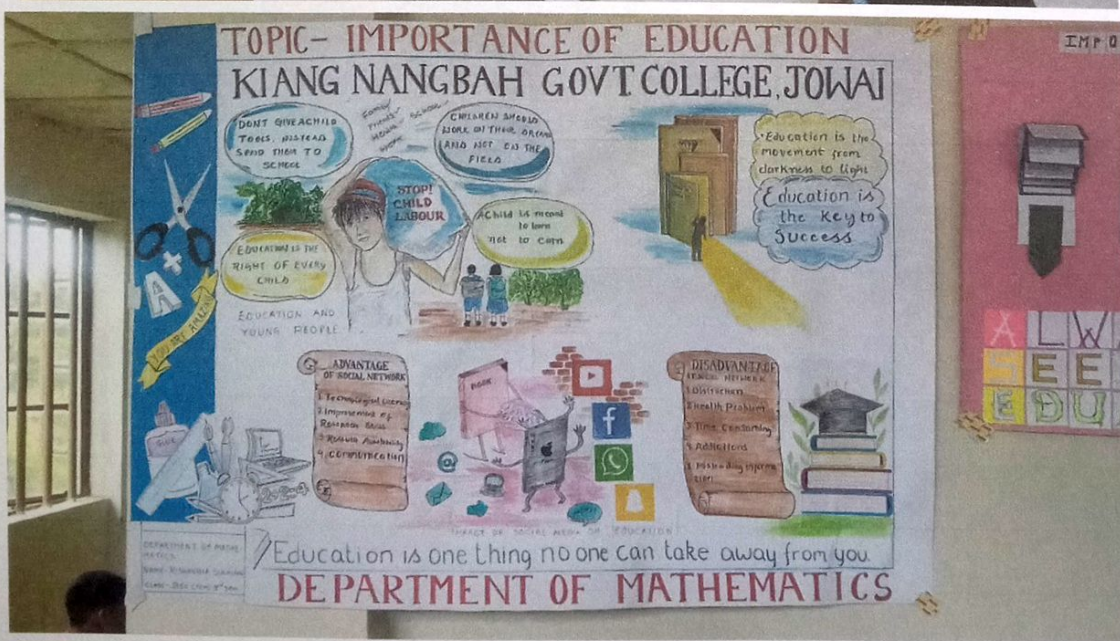 TOPIC- IMPORTANCE OF EDUCATION
KIANG NANGBAH GOVT COLLEGE, JOWAI
DON'T GIVE A CHILD
TOOLS, INSTEAD
SEND THEM TO
SCHOOL
Family
Friends
SCHOOL
CHILDREN SHOULD
WORK ON THEIR DREAMS
AND NOT ON THE
FIELD
STOP!
CHILD
LABOUR
A Child is meant
to learn
not to earn
EDUCATION IS THE
RIGHT OF EVERY
CHILD
EDUCATION AND
YOUNG PEOPLE
Education is the
movement from
darkness to light
Education is
the Key to
Success
A+
YOU ARE AMAZING
GLUE
ADVANTAGE
OF SOCIAL NETWORK
1. Technological
2. Improvement of
Research Skills
3.
4. Communication
BOOK
DISADVANTAGE
NETWORK
1. Distraction
2. Health Problem
3. Time Consuming
4. Addictions
5. Misleading
IMPACT OF SOCIAL MEDIA ON EDUCATION
Education is one thing no one can take away from you
DEPARTMENT OF MATHEMATICS
DEPARTMENT OF MATHE
MATICS
IMPO
ALWA
SEE
EDU